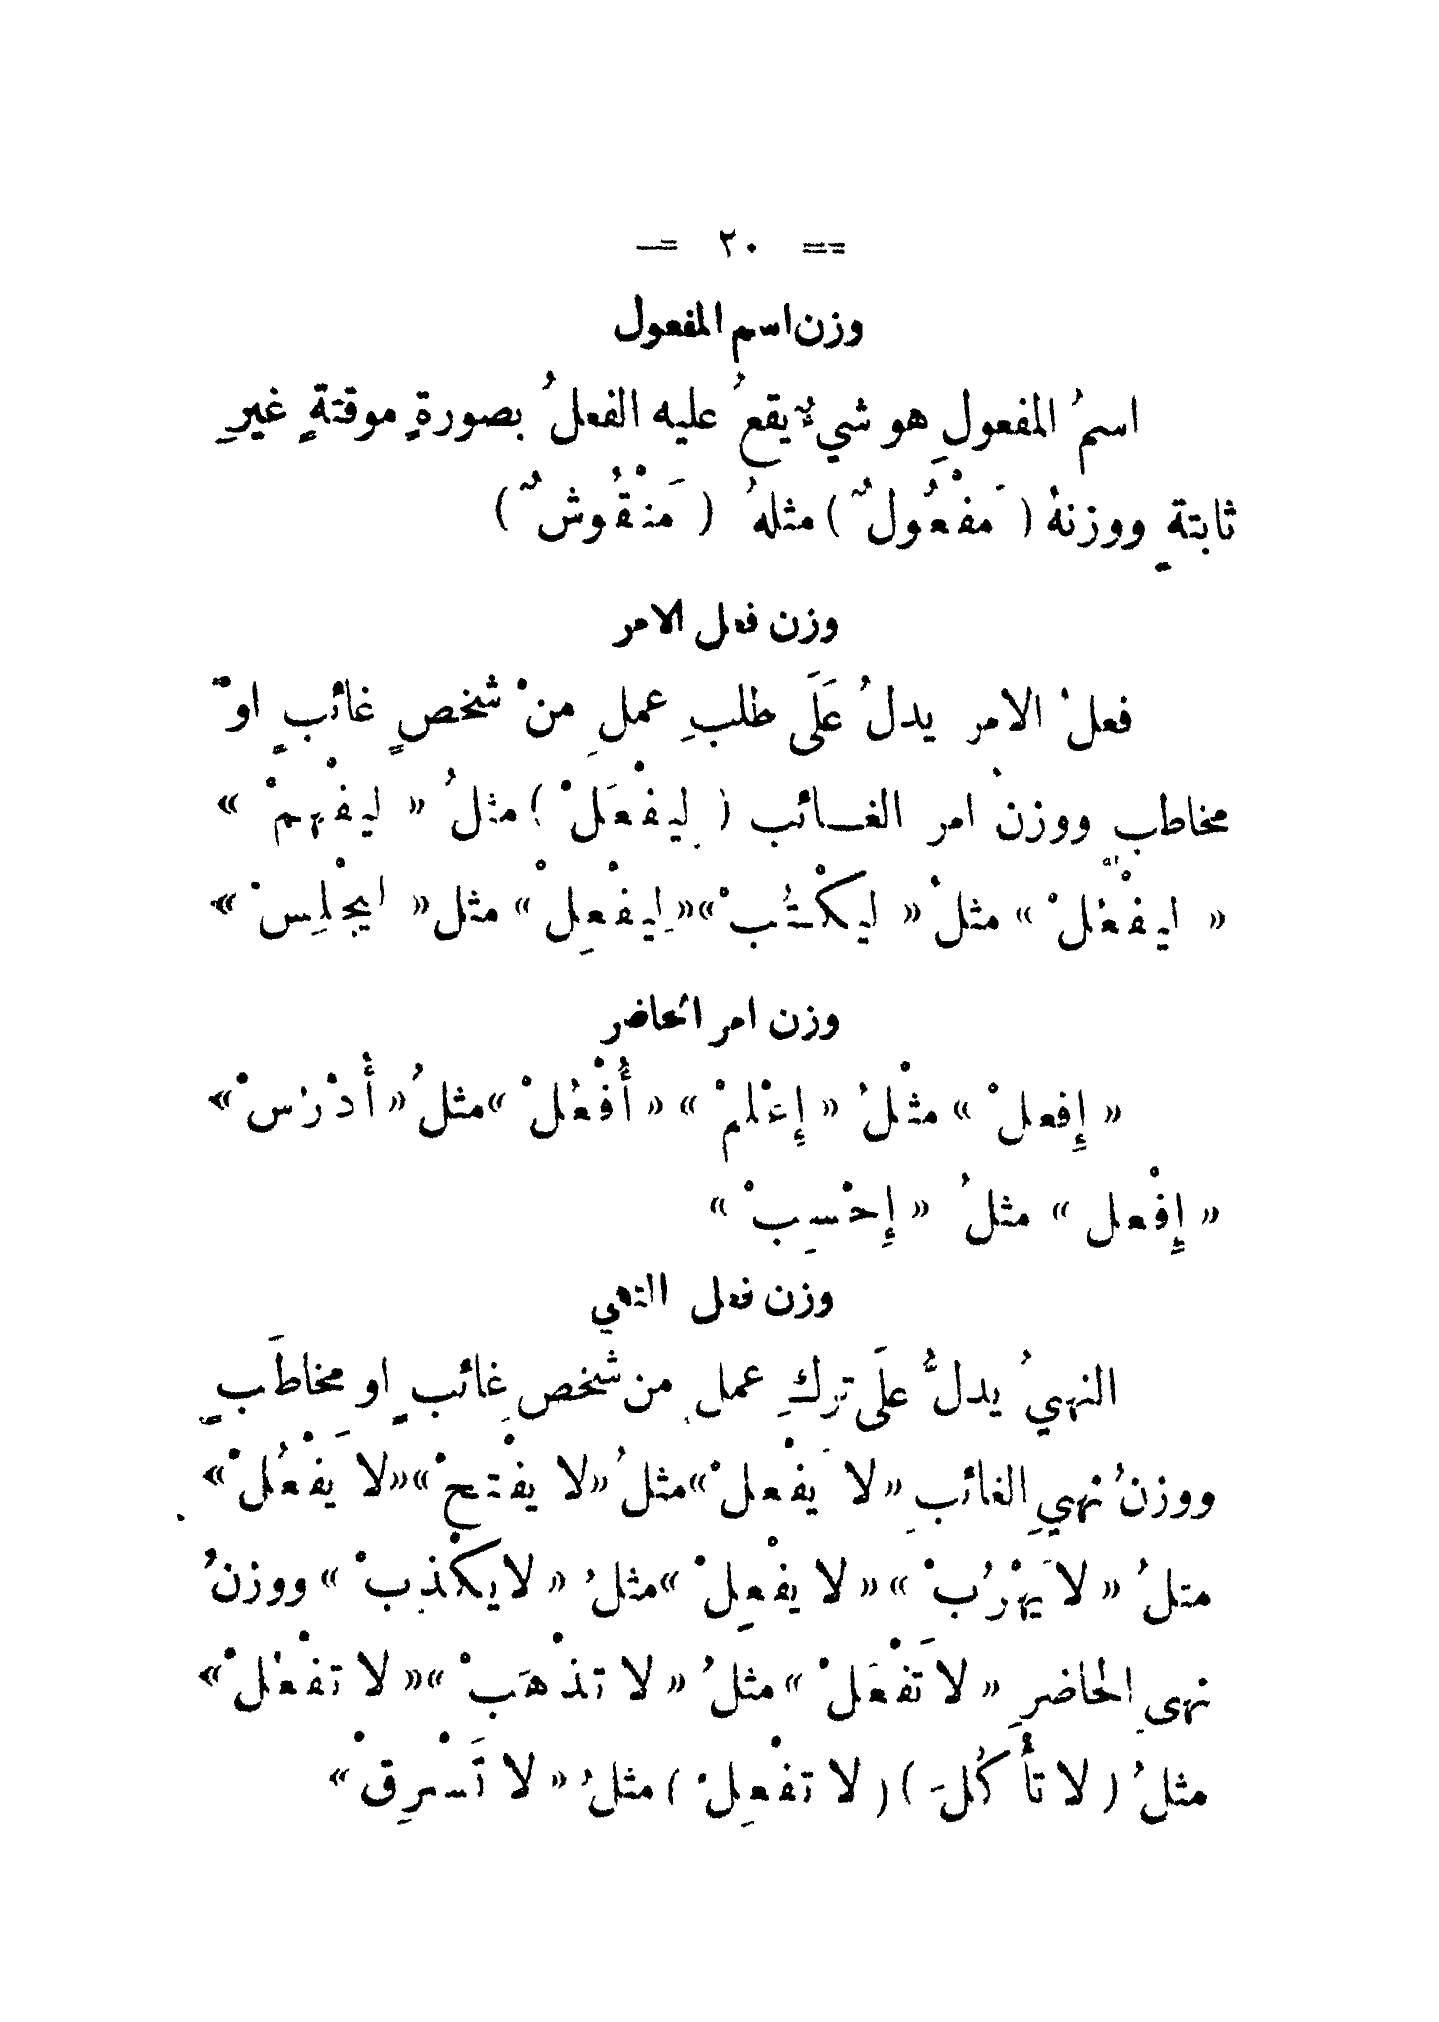 == ٢٠ ==
وزن اسم المفعول
اسمُ المفعولِ هو شيءٌ يقعُ عليه الفعلُ بصورةٍ موقتةٍ غيرِ
ثابتةٍ ووزنهُ ( مَفْعُولٌ ) مثلهُ ( مَنْقُوشٌ )
وزن فعل الامر
فعلُ الامر يدلُ عَلَى طلبِ عملِ منْ شخصٍ غائبٍ اوْ
مخاطبٍ ووزنُ امر الغـائب ( لِيفْعَلْ ) مثلُ « ليفْهمْ »
« ليفْعُلْ » مثلُ « ليكْتُبْ » « لِيفْعِلْ » مثل « ليجْلِسْ »
وزن امر الحاضر
« إِفعلْ » مثْلُ « إِعْلمْ » « أُفْعُلْ » مثلُ « أُدْرُسْ »
« إِفْعل » مثلُ « إِحْسِبْ »
وزن فعل النهي
النهيُ يدلُّ علَى تركِ عملِ من شخصِ غائبٍ او مخاطَبٍ
ووزنُ نهيِ الغائبِ « لا يَفْعلْ » مثلُ « لا يفْتحْ » « لا يَفْعُلْ »
مثلُ « لا يَهْرُبْ » « لا يفْعِلْ » مثلُ « لا يكْذِبْ » ووزنُ
نهىِ الحاضرِ « لا تَفْعَلْ » مثلُ « لا تذْهَبْ » « لا تفْعُلْ »
مثلُ ( لا تأْكُلَ ) ( لا تفْعِلْ ) مثلُ « لا تَسْرِقْ »